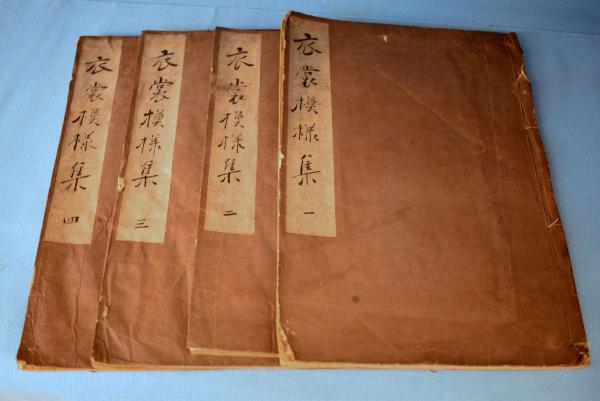 衣裳模様集 一
衣裳模様集 二
衣裳模様集 三
衣裳模様集 四